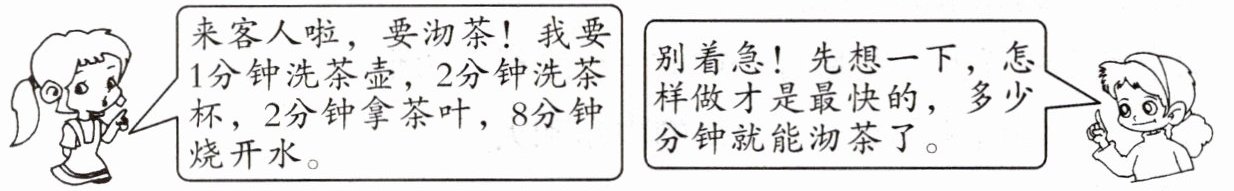 来客人啦，要沏茶！我要
1分钟洗茶壶，2分钟洗茶
杯，2分钟拿茶叶，8分钟
烧开水。
别着急！先想一下，怎
样做才是最快的，多少
分钟就能沏茶了。